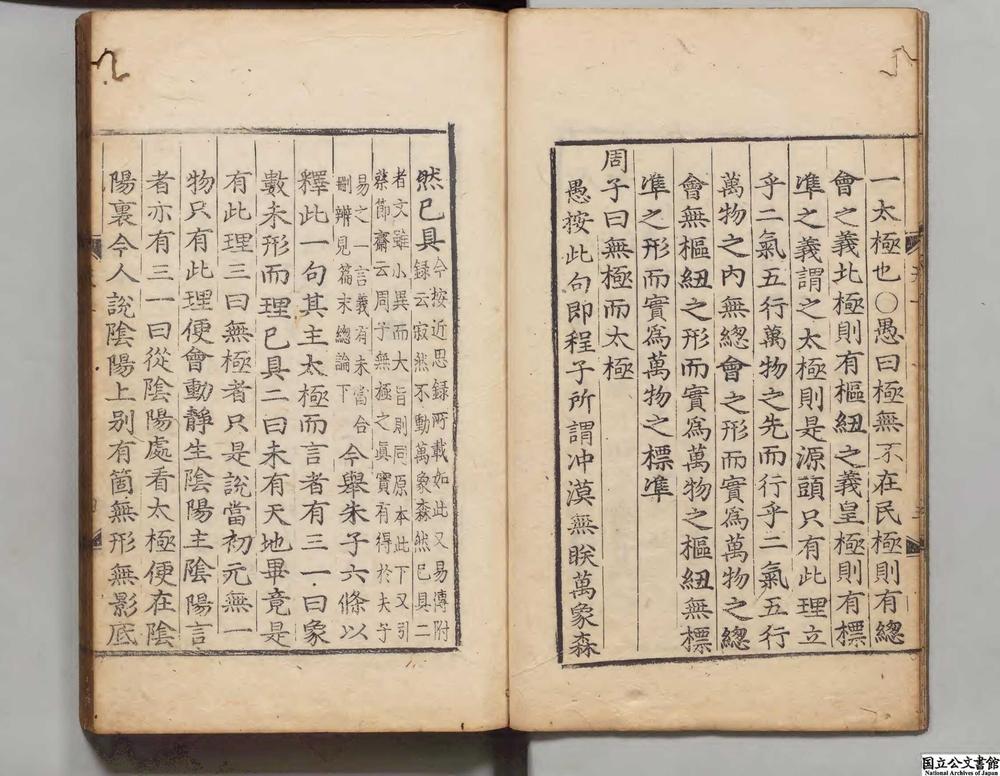 一太極也○愚曰極無不在民極則有緫
會之義北極則有樞紐之義皇極則有標
凖之義謂之太極則是源頭只有此理立
乎二氣五行萬物之先而行乎二氣五行
萬物之内無緫會之形而實爲萬物之緫
會無樞紐之形而實爲萬物之樞紐無標
凖之形而實爲萬物之標凖
周子曰無極而太極
愚按此句即程子所謂冲漠無朕萬象森
然已具今按近思録所載如此又易傳附
録云寂然不動萬象森然已具二
者文雖小異而大旨則同原本此下又引
蔡節齋云周子無極之眞實有得於夫子
易之一言義有未當合
刪辨見篇末總論下
今舉朱子六條以
釋此一句其主太極而言者有三一曰象
數未形而理已具二曰未有天地畢竟是
有此理三曰無極者只是說當初元無一
物只有此理便會動靜生陰陽主陰陽言
者亦有三一曰從陰陽處看太極便在陰
陽裏今人說陰陽上别有箇無形無影底
国立公文書館
National Archives of Japan